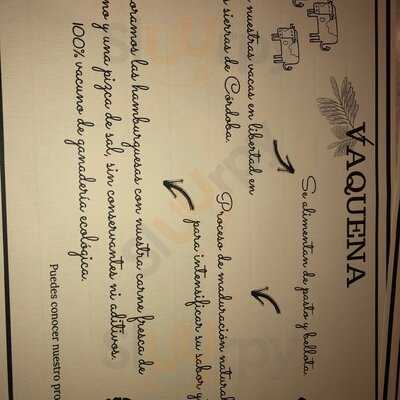 VAQUENA
nuestras vacas en libertad en
sierras de Córdoba.
Se alimentan de pasto y bellota.
Proceso de maduración natural
para intensificar su sabor y
las hamburguesas con nuestra carne fresca de
y una pizca de sal, sin conservantes ni aditivos.
100% vacuno de ganadería ecológica.
Puedes conocer nuestro